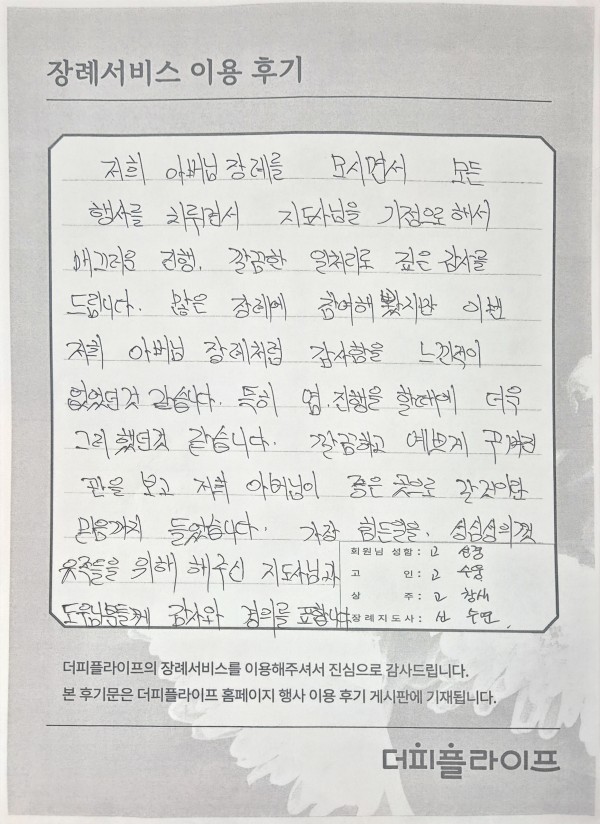 장례서비스 이용 후기
저희 아버님 장례를 모시면서 모든
행사를 치루면서 지도사님을 기점으로 해서
매끄러운 진행, 깔끔한 일처리로 깊은 감사를
드립니다. 많은 장례에 참여해 봤지만 이번
저희 아버님 장례처럼 감사함을 느낀적이
없었던것 같습니다. 특히 염.진행을 할때에 더욱
그리 했던것 같습니다. 깔끔하고 예쁘게 꾸며진
관을 보고 저희 아버님이 좋은 곳으로 갈것이란
믿음까지 들었습니다. 가장 힘든일을. 성심성의껏
유족들을 위해 해주신 지도사님과
도우미분들께 감사와 경의를 표합니다
회원님 성함 : 고
고 인 : 고
상 주 : 고
장례지도사 : 신 수연
더피플라이프의 장례서비스를 이용해주셔서 진심으로 감사드립니다.
본 후기문은 더피플라이프 홈페이지 행사 이용 후기 게시판에 기재됩니다.
더피플라이프